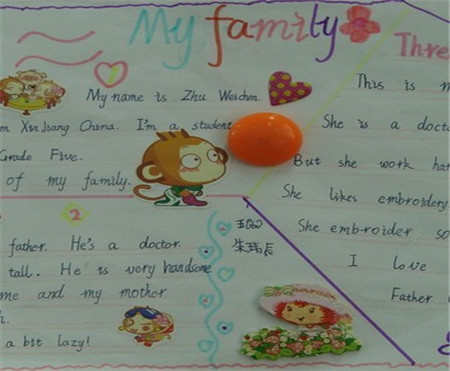 My family
1
My name is Zhu Weichen.
m XinJiang China. I'm a student
Grade Five.
of my family.
2
father. He's a doctor.
tall. He is very handsome
me and my mother
h.
a bit lazy!
五(2)
Thre
This is m
She is a docto
But she work har
She likes embroidery
She embroider so
I love
Father